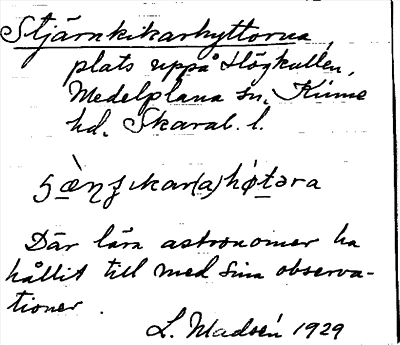 Stjärnkikarhyttorna,
plats uppå Högkullen,
Medelplana sn. Kinne
hd. Skarab. l.
Där lära astronomer ha
hållit till med sina observa-
tioner.
L. Madsén 1929